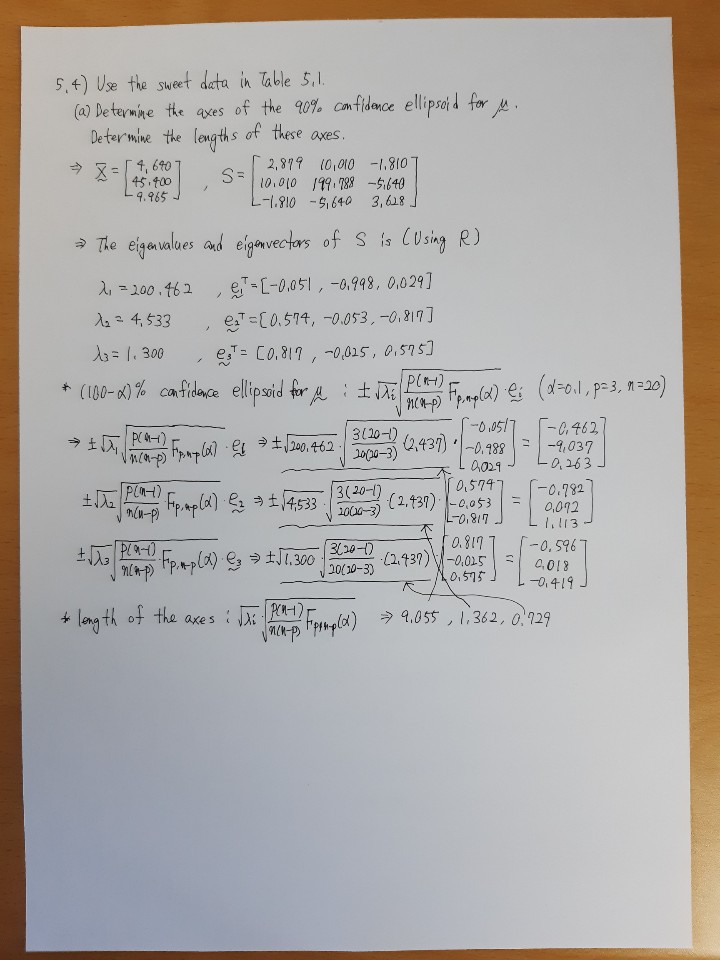 5.4) Use the sweet data in Table 5.1.
(a) Determine the axes of the 90% confidence ellipsoid for μ.
Determine the lengths of these axes.
⇒ X̄ = [4.640 45.400 9.965], S = [2.879 10.010 -1.810
10.010 199.788 -5.640
-1.810 -5.640 3.628]
⇒ The eigenvalues and eigenvectors of S is (Using R)
λ₁ = 200.462 , e₁ᵀ = [-0.051 , -0.998, 0.029]
λ₂ = 4.533 , e₂ᵀ = [0.574, -0.053, -0.817]
λ₃ = 1.300 , e₃ᵀ = [0.817, -0.025, 0.575]
* (100-α)% confidence ellipsoid for μ : ±√λᵢ √(p(n-1)/n(n-p) F_{p,n-p}(α)) · eᵢ (α=0.1, p=3, n=20)
⇒ ±√λ₁ √(p(n-1)/n(n-p) F_{p,n-p}(α)) · e₁ ⇒ ±√200.462 · √(3(20-1)/20(20-3) (2.437)) · [-0.051 -0.988 0.029] = [-0.462 -9.037 -0.263]
±√λ₂ √(p(n-1)/n(n-p) · F_{p,n-p}(α)) · e₂ ⇒ ±√4.533 · √(3(20-1)/20(20-3) · (2.437)) · [0.574 -0.053 -0.817] = [-0.782 0.072 1.113]
±√λ₃ √(p(n-1)/n(n-p) · F_{p,n-p}(α)) · e₃ ⇒ ±√1.300 · √(3(20-1)/20(20-3) · (2.437)) · [0.817 -0.025 0.575] = [-0.596 0.018 -0.419]
* length of the axes : √λᵢ · √(p(n-1)/n(n-p) F_{p,n-p}(α)) ⇒ 9.055 , 1.362, 0.729